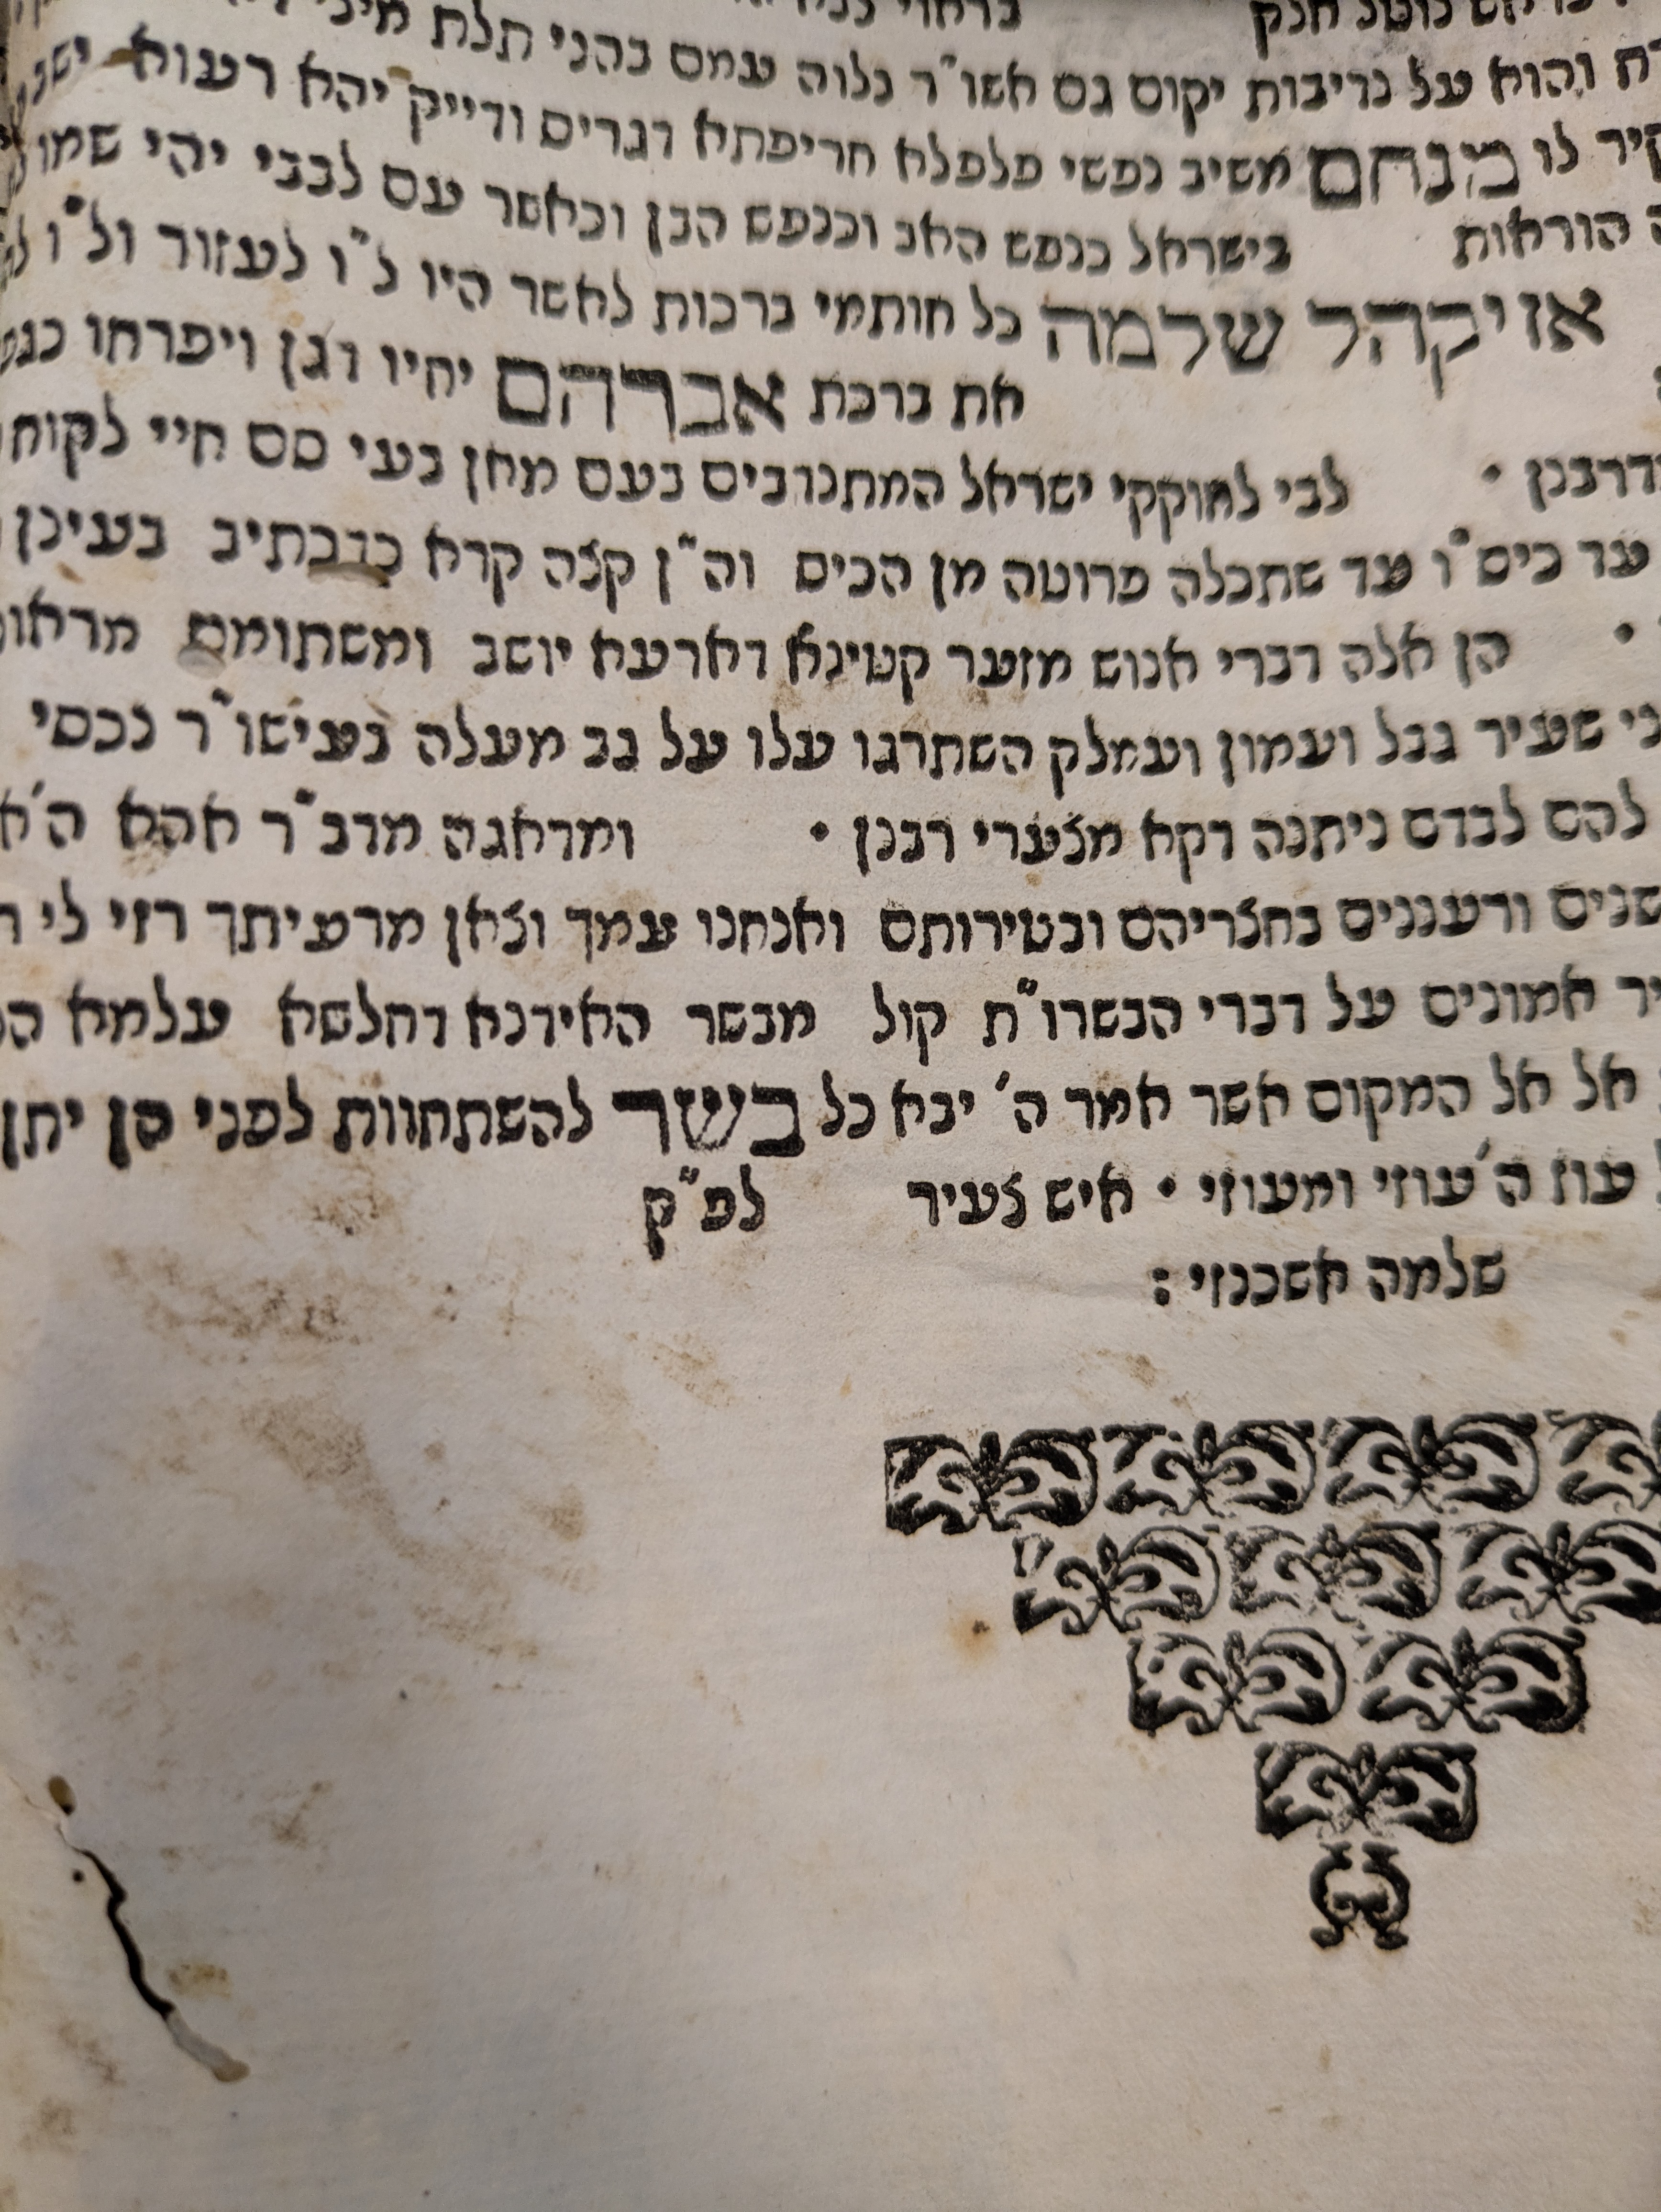 והוא על נדיבות יקום גם אשו"ר נלוה עמם בהני תלת
לו מנחם משיב נפשי פלפלא חריפתא דגרים ודייק יהא רעוא
הוראות בישראל כנפש האב וכנפש הבן וכאשר עם לבבי יהי
אז יקהל שלמה כל חותמי ברכות לאשר היו ל"ו לעזור ול"ו
את ברכת אברהם יחיו דגן ויפרחו
לבי לחוקקי ישראל המתנדבים בעם מתן בעי סם חיי
עד כיס"ו עד שתכלה פרוטה מן הכיס וה"ן קצה קרא כדכתיב בעינן
הן אלה דברי אנוש מזער קטינא דארעא יושב ומשתומם
שעיר גבל ועמון ועמלק השתרגו עלו על גב מעלה בעישו"ר נכסי
להם לבדם ניתנה דקא מצערי רבנן • ומדאגה מדב"ר אהא
ורעננים בחצריהם ובטירותם ואנחנו עמך וצאן מרעיתך רזי לי
אמונים על דברי הבשרו"ת קול מבשר האידנא דחלשא עלמא
אל אל המקום אשר אמר ה' יבא כל בשר להשתחוות לפני כן יתן
עוז ה' עוזי ומעוזי • איש צעיר לפ"ק
שלמה אשכנזי :